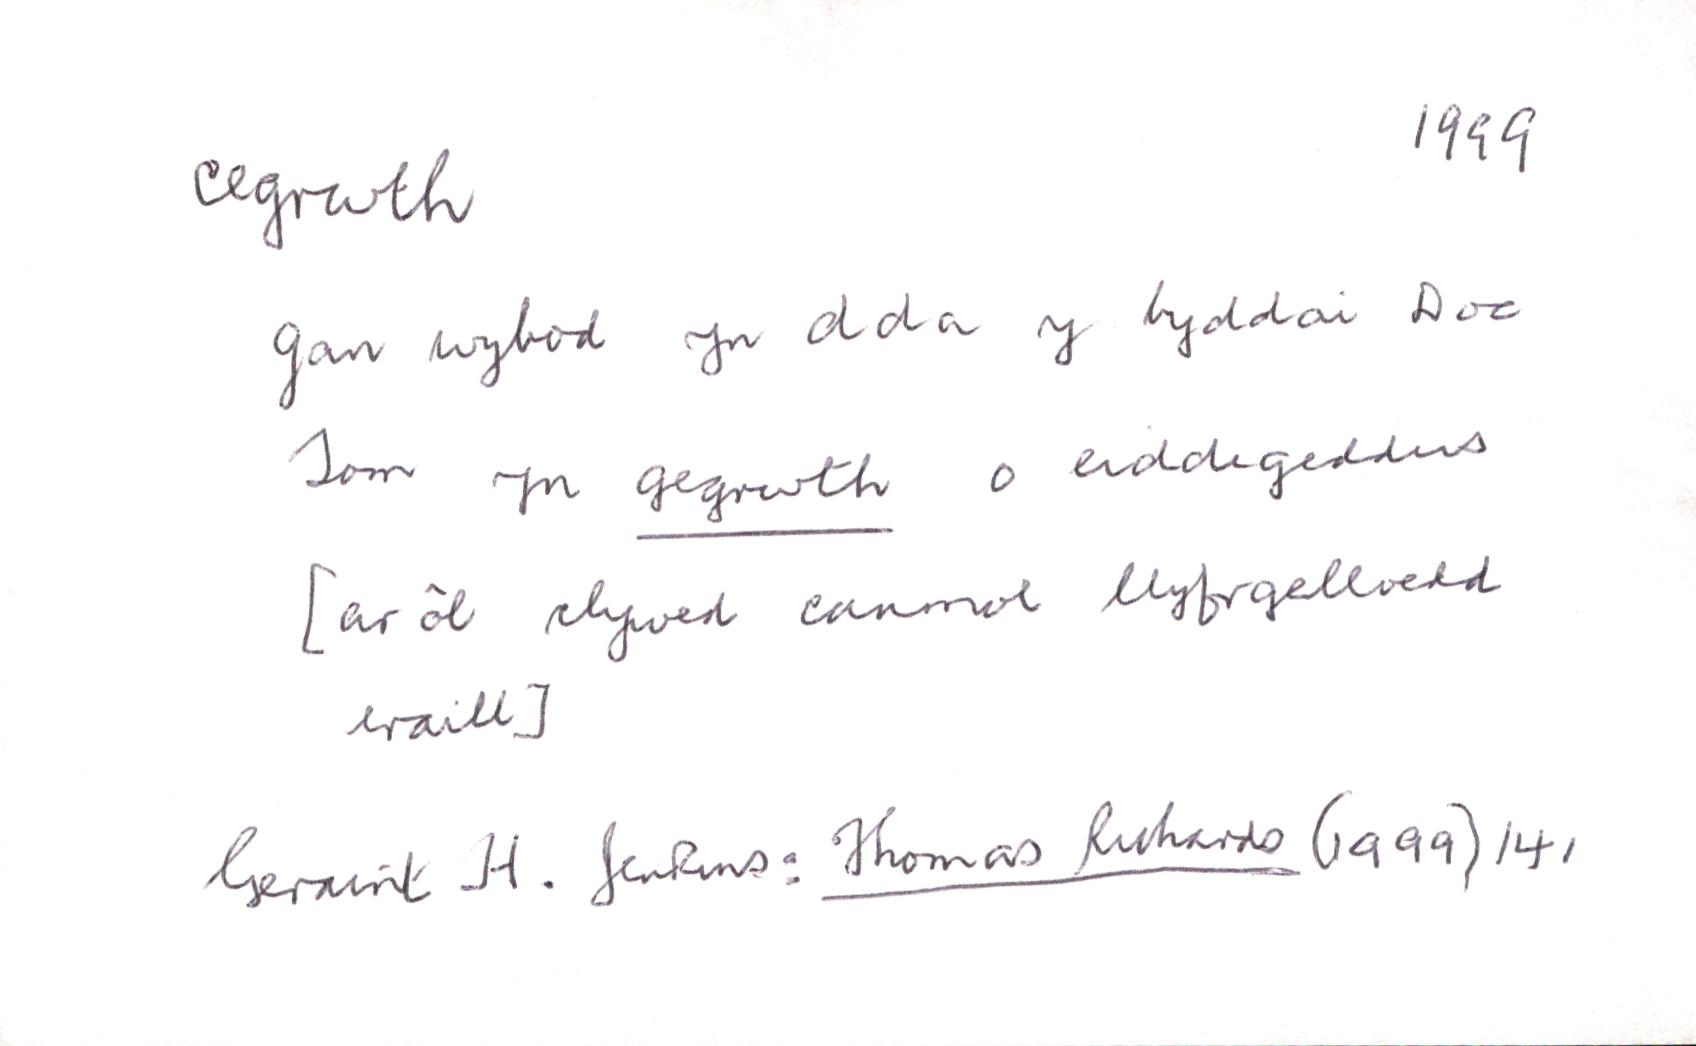 1999
cegrwth
gan wybod yn dda y byddai Doc
Tom yn gegrwth o eiddigeddus
[ar ôl clywed canmol llyfrgelloedd
eraill]
Geraint H. Jenkins: Thomas Richards (1999) 141